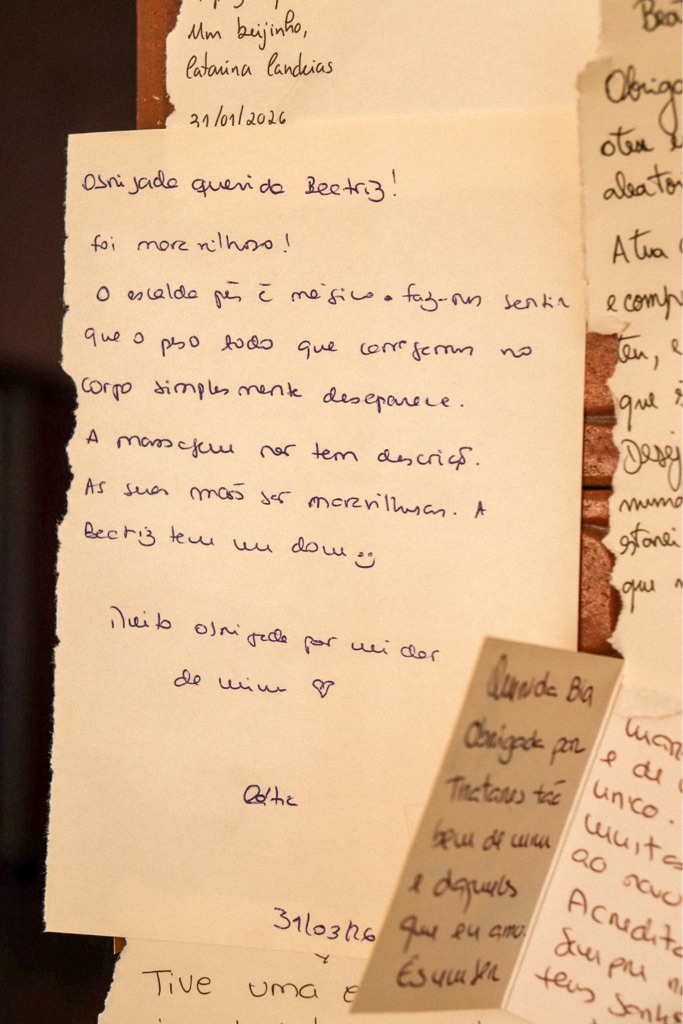 Um beijinho,
Catarina Candeias
31/01/2026
Obrigada querida Beatriz!
foi maravilhoso!
O escalda pés é mágico. faz-nos sentir
que o peso todo que carregamos no
corpo simplesmente desaparece.
A massagem não tem descrição.
As suas mãos são maravilhosas. A
Beatriz tem um dom
Muito obrigada por cuidar
de mim ♡
31/03/26
Tive uma e
Bea
Obriga
aleator
A tua
e comp
teu, e
que
Desej
numa
estarei
que
Querida Bia
Obrigada por
Tratares tão
bem de mim
e daqueles
que eu amo.
És um ser
e de
único.
muita
ao novo
Acredita
Sempre n
teus sonho